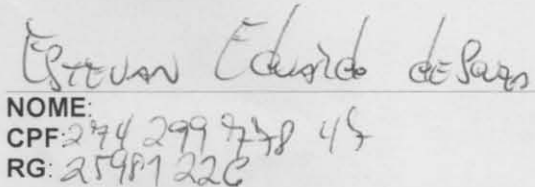 ESTEVAN Eduardo de Souza
NOME:
CPF: 274 299 778 47
RG: 25981 226